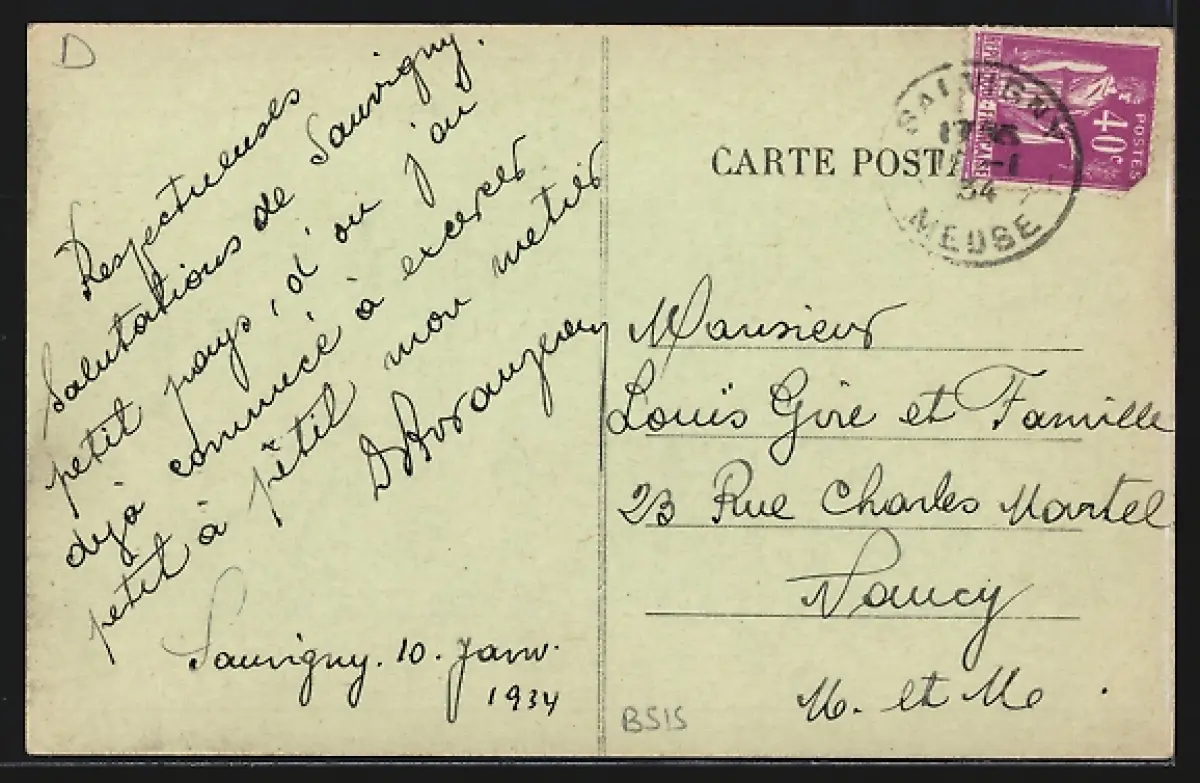 D
Respectueuses
Salutations de Sauvigny.
petit pays, d'ou j'ai
déjà commencé à exercer
petit à pétit mon metier
Sauvigny. 10. Janv.
1934
CARTE POSTA
SAUVIGNY
34
MEUSE
RÉPUBLIQUE FRANÇAISE
POSTES
40c
Monsieur
Louïs Gire et Famille
23 Rue Charles Martel
Nancy
M. et Me
B515